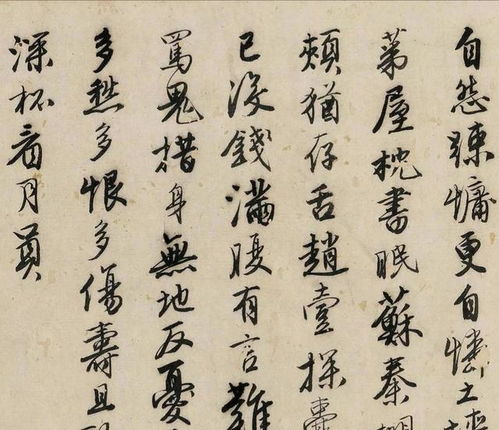 自怨踈慵更自憐土
茅屋枕書眠蘇秦
頰猶存舌趙壹探囊
已没錢滿腹有言難
罵鬼措身無地反憂
多愁多恨多傷壽且
深杯看月員